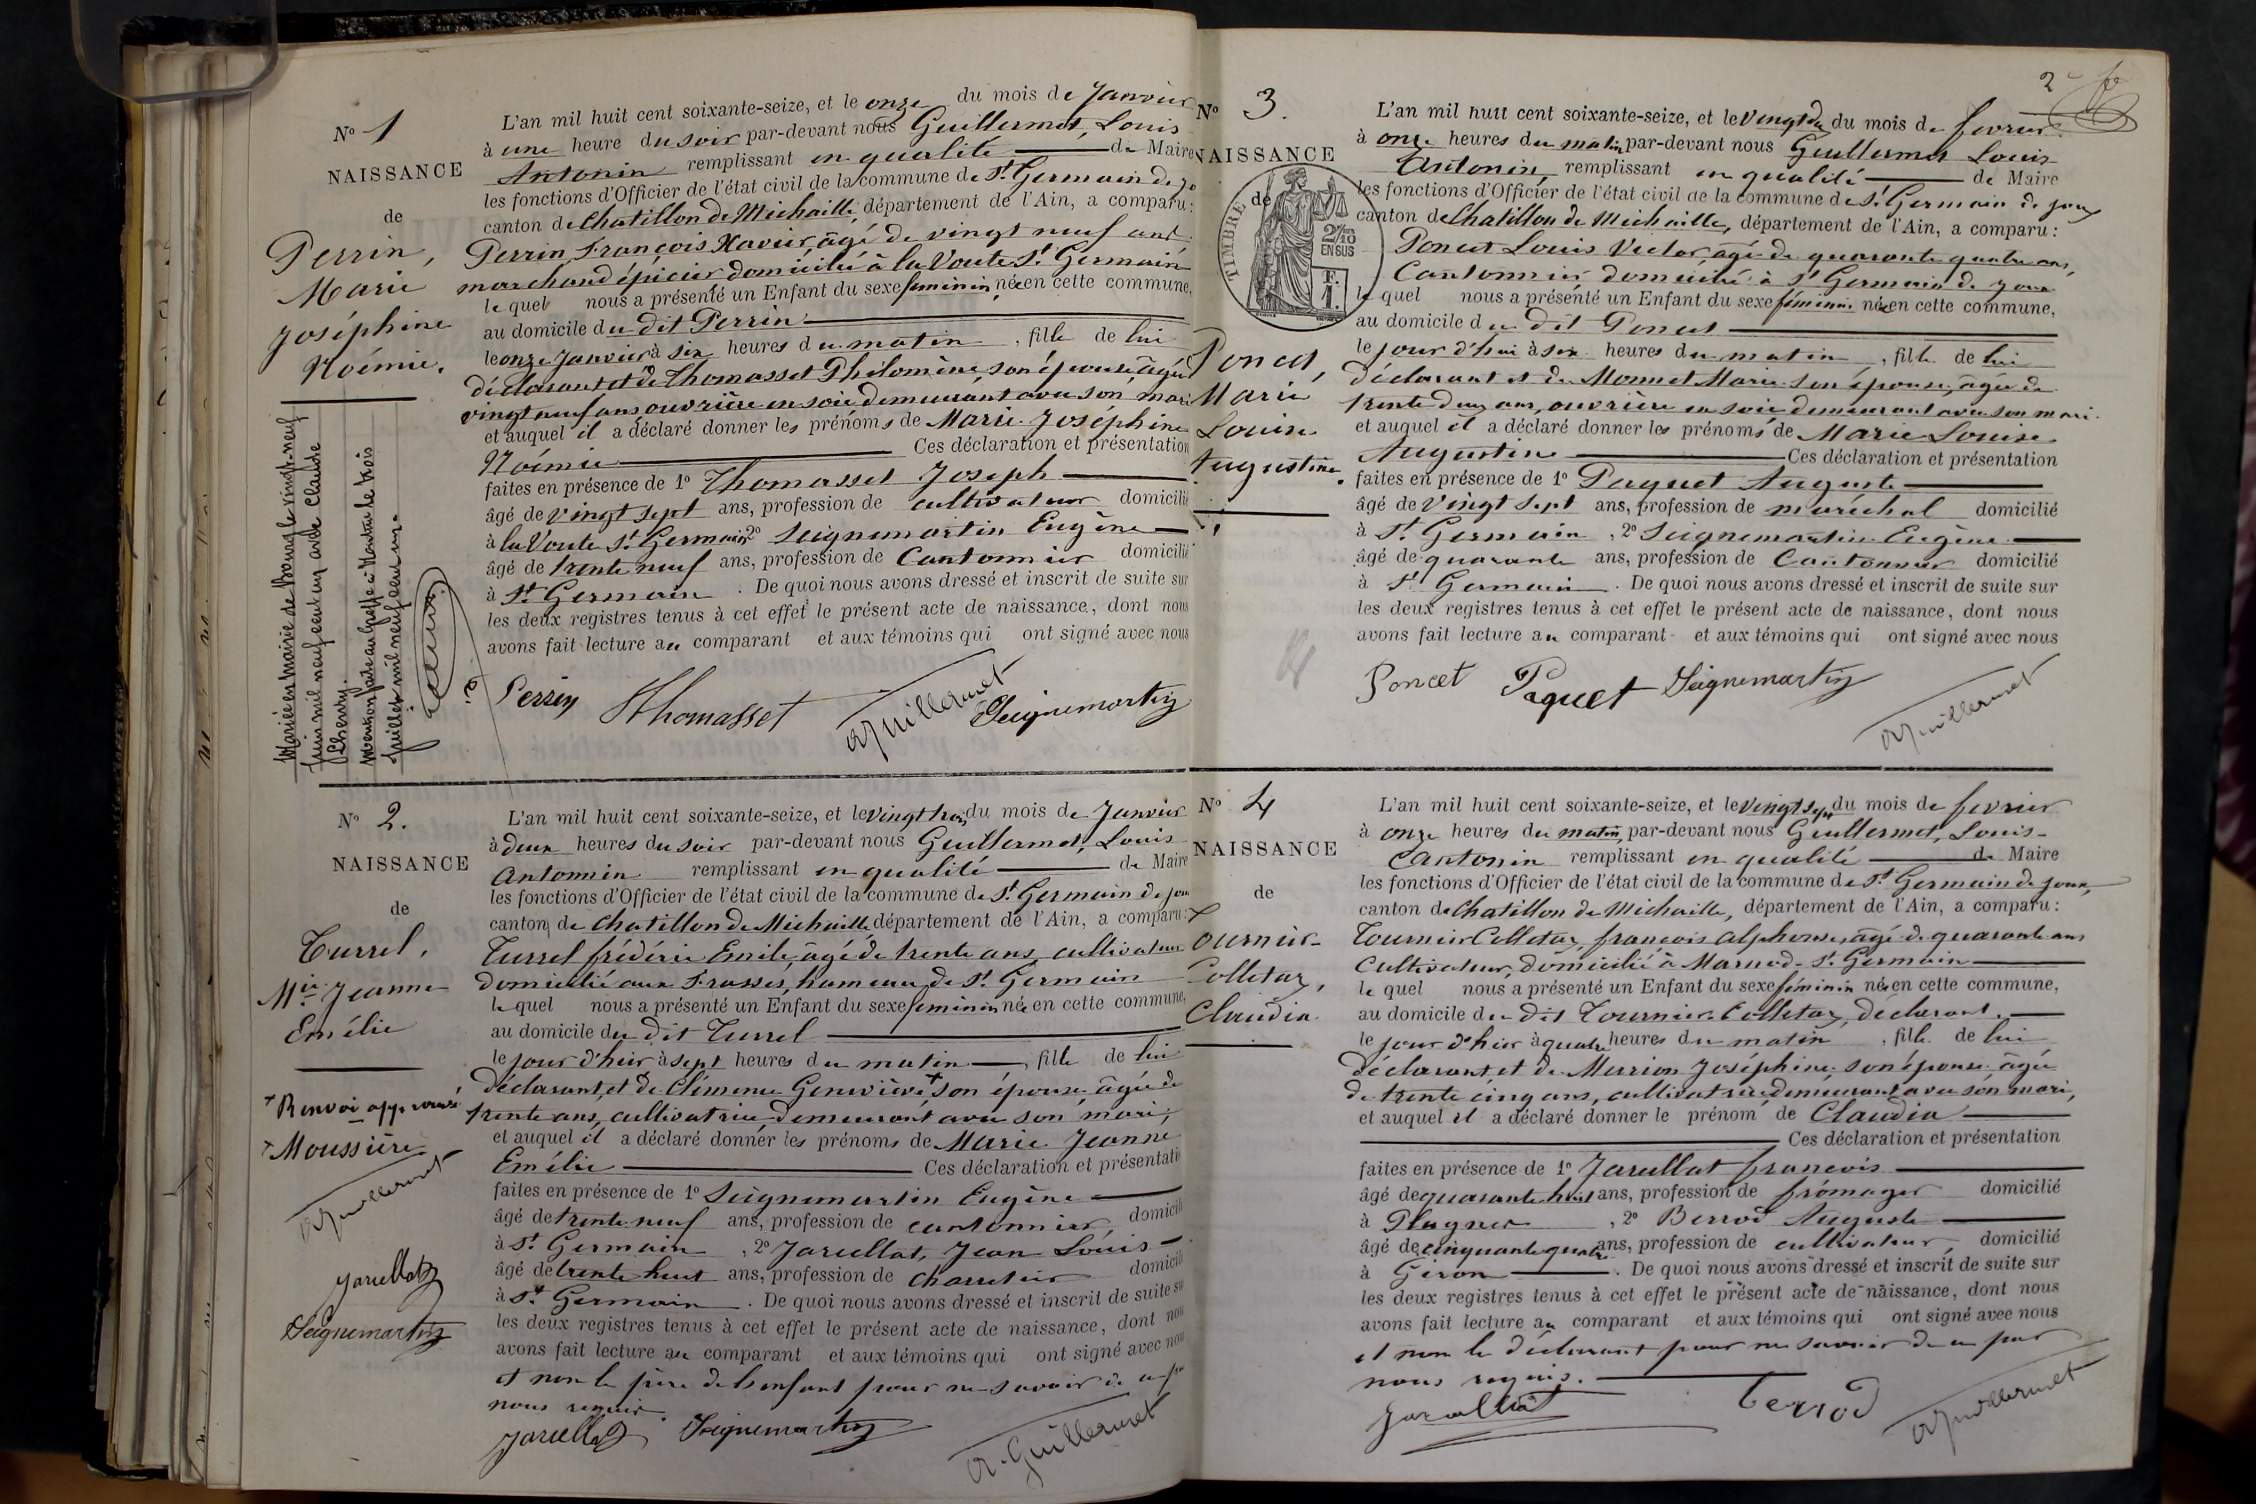 N° 1
NAISSANCE
de
Perrin,
Marie
Joséphine
Noémie.
Mariée en mairie de le vingt-neuf
juin mil neuf cent un avec Claude
Mention faite au Greffe à Nantua le trois
Juillet mil neuf cent un.
L'an mil huit cent soixante-seize, et le onze du mois de Janvier
à une heure du soir par-devant nous Guillermet, Louis
Antonin remplissant en qualité de Maire
les fonctions d'Officier de l'état civil de la commune de St Germain de jo
canton de Chatillon de Michaille, département de l'Ain, a comparu:
Perrin, François Xavier, âgé de vingt neuf ans,
marchand épicier domicilié à la Voute St Germain
le quel nous a présenté un Enfant du sexe féminin, née en cette commune,
au domicile du dit Perrin
le onze Janvier à six heures du matin, fille de lui
déclarant et de Thomasset Philomène, son épouse âgée
vingt neuf ans, ouvrière en soie demeurant avec son mari
et auquel il a déclaré donner les prénoms de Marie Joséphine
Noémie Ces déclaration et présentation
faites en présence de 1° Thomasset Joseph
âgé de vingt sept ans, profession de cultivateur domicilié
à la Voute St Germain 2° Seignemartin Eugène
âgé de trente neuf ans, profession de Cantonnier domicilié
à St Germain. De quoi nous avons dressé et inscrit de suite sur
les deux registres tenus à cet effet le présent acte de naissance, dont nous
avons fait lecture au comparant et aux témoins qui ont signé avec nous
Perrin JThomasset A Guillermet Seignemartin
N° 2.
NAISSANCE
de
Turrel,
Mie Jeanne
Emélie
+ Renvoi approuvé
+ Moussière
A Guillermet
Jarcellat
Seignemartin
L'an mil huit cent soixante-seize, et le vingt trois du mois de Janvier
à deux heures du soir par-devant nous Guillermet, Louis
Antonnin remplissant en qualité de Maire
les fonctions d'Officier de l'état civil de la commune de St Germain de jou
canton de Chatillon de Michaille, département de l'Ain, a comparu:
Turrel frédéric Emile, âgé de trente ans, cultivateur
domicilié aux Frasses, hameau de St Germain
le quel nous a présenté un Enfant du sexe féminin née en cette commune,
au domicile du dit Turrel
le jour d'hier à sept heures du matin, fille de lui
déclarant, et de Clémence Geneviève + son épouse âgée de
trente ans, cultivatrice, demeurant avec son mari,
et auquel il a déclaré donner les prénoms de Marie Jeanne
Emélie Ces déclaration et présentati
faites en présence de 1° Seignemartin Eugène
âgé de trente neuf ans, profession de cantonnier, domicili
à St Germain, 2° Jarcellat, Jean Louis
âgé de trente huit ans, profession de charretier domicili
à St Germain. De quoi nous avons dressé et inscrit de suite su
les deux registres tenus à cet effet le présent acte de naissance, dont nou
avons fait lecture au comparant et aux témoins qui ont signé avec nou
et non le père de l'enfant pour ne savoir de ce par
nous requis.
Jarcellat Seignemartin A. Guillermet
2
N° 3.
NAISSANCE
de
TIMBRE
2/10 EN SUS
F. 1.
Poncet,
Marie
Louise
Augustine.
L'an mil huit cent soixante-seize, et le vingt du mois de fevrier
à onze heures du matin par-devant nous Guillermet Louis
Antonin, remplissant en qualité de Maire
les fonctions d'Officier de l'état civil de la commune de St Germain de joux
canton de Chatillon de Michaille, département de l'Ain, a comparu:
Poncet Louis Victor, âgé de quarante quatre ans,
Cantonnier domicilié à St Germain de joux
le quel nous a présenté un Enfant du sexe féminin née en cette commune,
au domicile du dit Poncet
le jour d'hui à six heures du matin, fille de lui
déclarant et de Monnet Marie son épouse, âgée de
trente deux ans, ouvrière en soie demeurant avec son mari.
et auquel il a déclaré donner les prénoms de Marie Louise
Augustine Ces déclaration et présentation
faites en présence de 1° Paquet Auguste
âgé de vingt sept ans, profession de maréchal domicilié
à St Germain, 2° Seignemartin Eugène
âgé de quarante ans, profession de Cantonnier domicilié
à St Germain. De quoi nous avons dressé et inscrit de suite sur
les deux registres tenus à cet effet le présent acte de naissance, dont nous
avons fait lecture au comparant et aux témoins qui ont signé avec nous
Poncet Paquet Seignemartin
A Guillermet
N° 4
NAISSANCE
de
Tournier-
Colletaz,
Claudia.
L'an mil huit cent soixante-seize, et le vingt sept du mois de fevrier
à onze heures du matin, par-devant nous Guillermet, Louis-
Antonin remplissant en qualité de Maire
les fonctions d'Officier de l'état civil de la commune de St Germain de joux,
canton de Chatillon de Michaille, département de l'Ain, a comparu:
Tournier Colletaz, françois Alphonse, âgé de quarante ans
Cultivateur, domicilié à Marnod-St Germain
le quel nous a présenté un Enfant du sexe féminin née en cette commune,
au domicile du dit Tournier Colletaz, déclarant.
le jour d'hier à quatre heures du matin, fille de lui
déclarant et de Mermon Joséphine son épouse âgée
de trente cinq ans, cultivatrice demeurant avec son mari,
et auquel il a déclaré donner le prénom de Claudia
Ces déclaration et présentation
faites en présence de 1° Jarcellat françois
âgé de quarante huit ans, profession de frômager domicilié
à Plagnes, 2° Berrod Auguste
âgé de cinquante quatre ans, profession de cultivateur, domicilié
à Giron. De quoi nous avons dressé et inscrit de suite sur
les deux registres tenus à cet effet le présent acte de naissance, dont nous
avons fait lecture au comparant et aux témoins qui ont signé avec nous
et non le déclarant pour ne savoir de ce par
nous requis.
Jarcellat Berrod A Guillermet